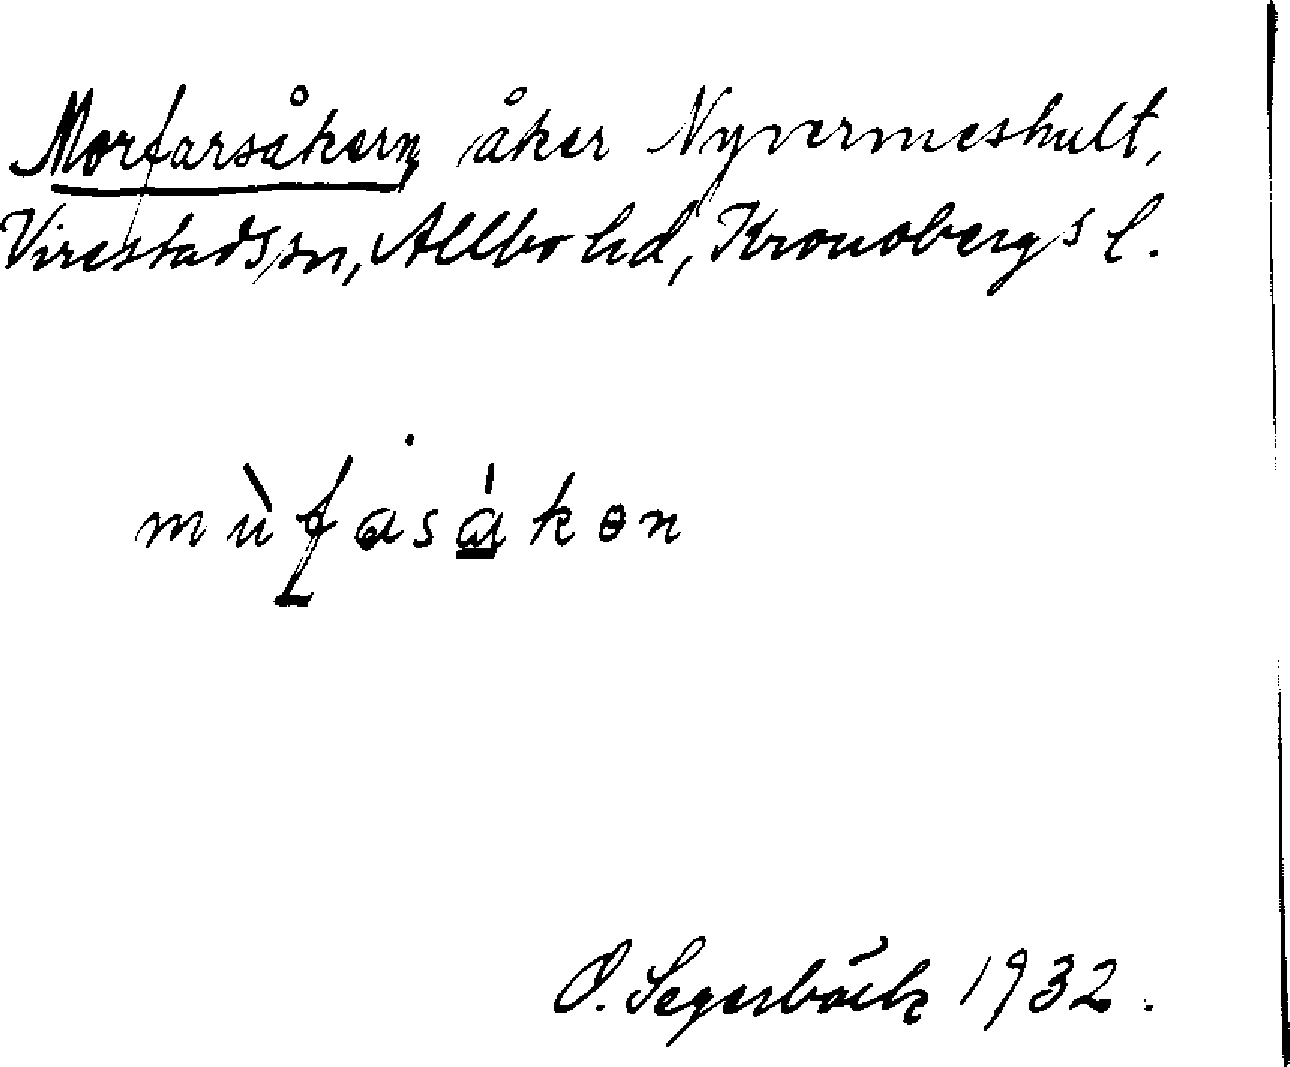 Morfarsåkern åker Nyvermeshult,
Virestads sn, Allbo hd, Kronobergs l.
mùfasákɵn
O. Segerbäck 1932.